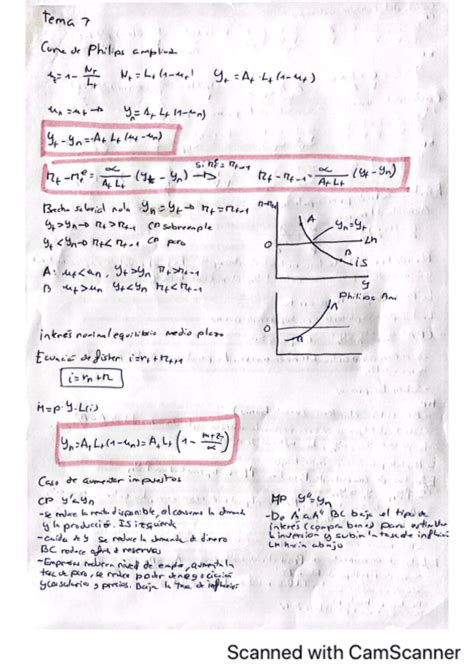 Tema 7
Curva de Philips ampliada
u_t = 1 - N_t/L_t   N_t = L_t (1-u_t)   Y_t = A_t · L_t (1-u_t)
u_n = u_t → Y_n = A_t L_t (1-u_n)
Y_t - Y_n = -A_t L_t (u_t - u_n)
π_t - π_t^e = α/(A_t L_t) (Y_t - Y_n) → si π_t^e = π_t-1   π_t - π_t-1 = α/(A_t L_t) (Y_t - Y_n)
Brecha nula Y_n = Y_t → π_t = π_t-1
Y_t > Y_n → π_t > π_t-1 CP
Y_t < Y_n → π_t < π_t-1 CP paro
A: u_t < u_n, Y_t > Y_n π_t > π_t-1
B u_t > u_n Y_t < Y_n π_t < π_t-1
A
Y_n = Y_t
0
LM
B
IS
Y
Philips
0
interés nominal equilibrio medio plazo
Ecuación de fisher i = r_t + π_t+1
i = r_n + π
M = P · Y · L(i)
Y_n = A_t L_t (1-u_n) = A_t L_t (1 - (m+z)/α)
Caso de aumentar impuestos
CP Y' < Y_n
- se reduce la renta disponible, el consumo la demanda
y la producción. IS izquierda
- Caída de Y se reduce la demanda de dinero
BC reduce oferta reservas
- Empresas reducen nivel de empleo, aumenta la
tasa de paro, se reduce poder de negociación
y salarios y precios. Baja la tasa de inflación
MP Y'' = Y_n
- De A' a A'' BC baja el tipo de
interés (compra bonos) para estimular
la inversión y subir la tasa de inflación
LM hacia abajo
Scanned with CamScanner